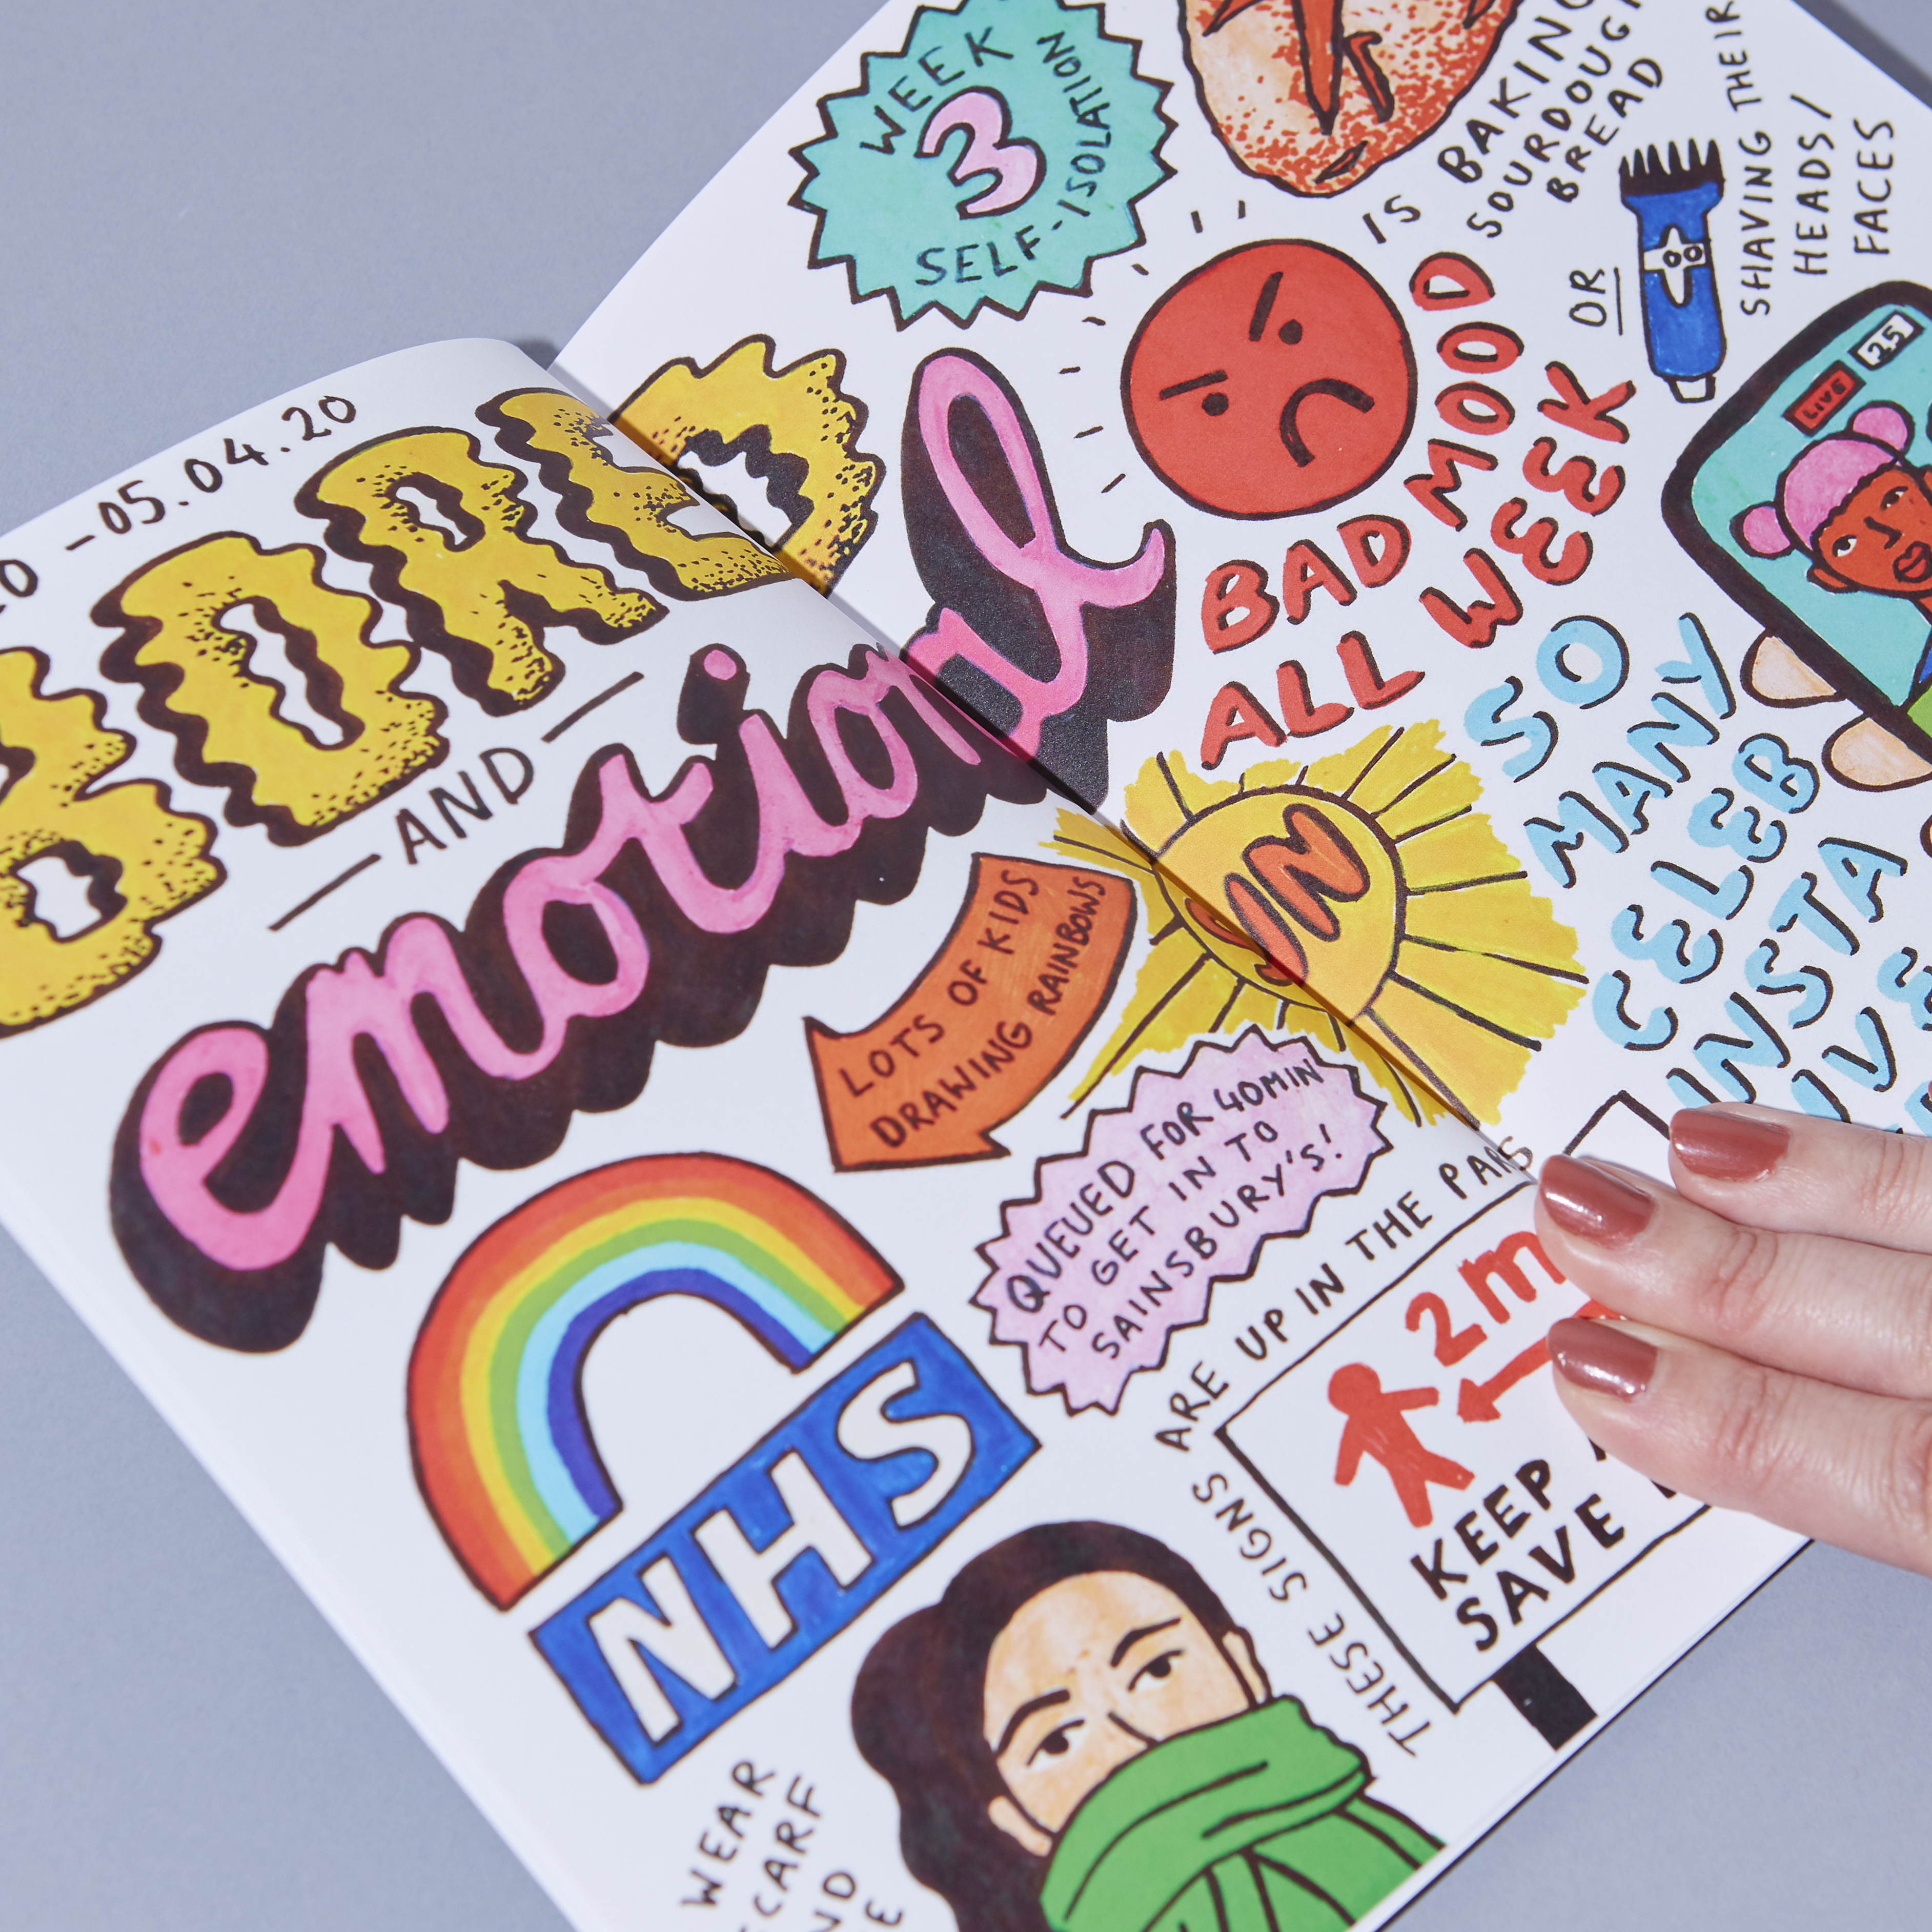 -05.04.20
BORED
-AND-
emotional
WEEK
3
SELF-ISOLATION
IS BAKING
SOURDOUGH
BREAD
OR
SHAVING THEIR
HEADS/
FACES
BAD MOOD
ALL WEEK
LIVE
25
SO
MANY
CELEB
INSTA
SUN
LOTS OF KIDS
DRAWING RAINBOWS
NHS
QUEUED FOR 40MIN
TO GET IN TO
SAINSBURY'S!
THESE SIGNS ARE UP IN THE PARKS
2m
KEEP
SAVE
WEAR
SCARF